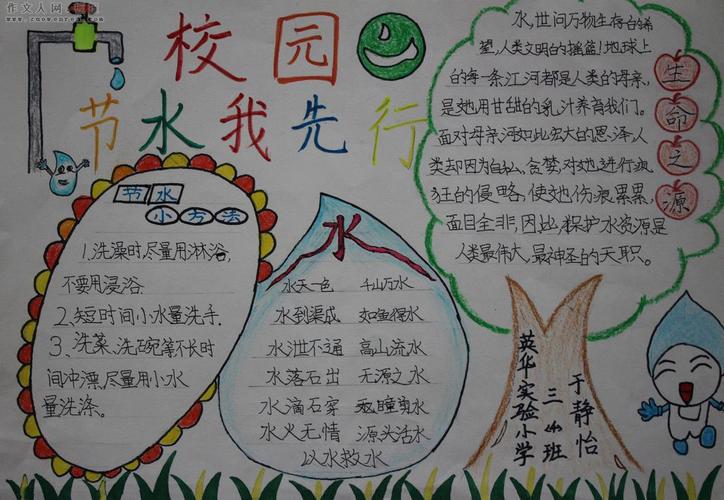 作文人网
校园
节水我先行
节水
小方法
1.洗澡时,尽量用淋浴,
不要用浸浴.
2、短时间小水量洗手.
3、洗菜、洗碗筷不长时
间冲漂,尽量用小水
量洗涤。
水
水天一色 千山万水
水到渠成 如鱼得水
水泄不通 高山流水
水落石出 无源之水
水滴石穿
水火无情 源头活水
以水救水
水,世间万物生存台希
望,人类文明的摇篮!地球上
的每一条江河都是人类的母亲,
是她用甘甜的乳汁养育我们。
面对母亲河如此宏大的恩泽,人
类却因为自私、贪婪,对她进行疯
狂的侵略,使她伤痕累累,
面目全非,因此,保护水资源是
人类最伟大、最神圣的天职。
生命之源
英华实验小学
三4班
于静怡